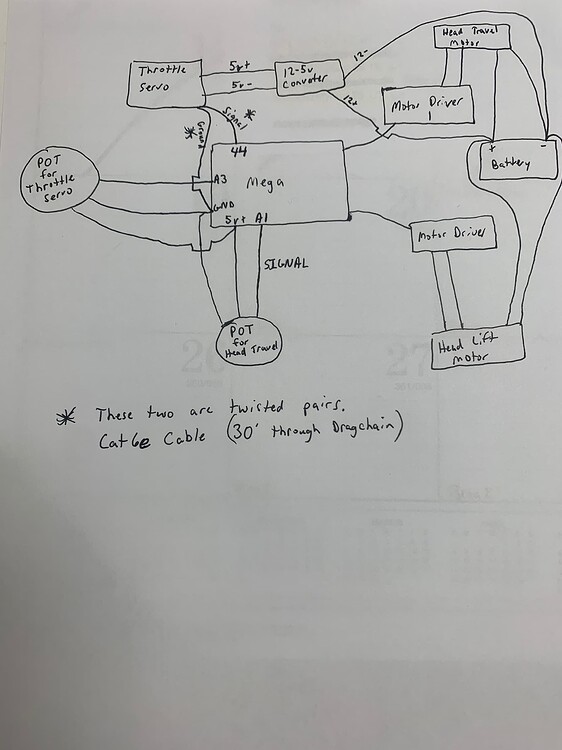 Head Travel
Motor
12-
Throttle
Servo
5v+
5v-
12-5v
Convater
12+
Motor Driver
1
Signal *
* Ground
44
POT
for
Throttle
Servo
A3
Mega
GND
5v+ A1
+ -
Battery
Motor Driver
SIGNAL
POT
for
Head Travel
Head Lift
Motor
* These two are twisted pairs.
Cat6e Cable (30' through Dragchain)